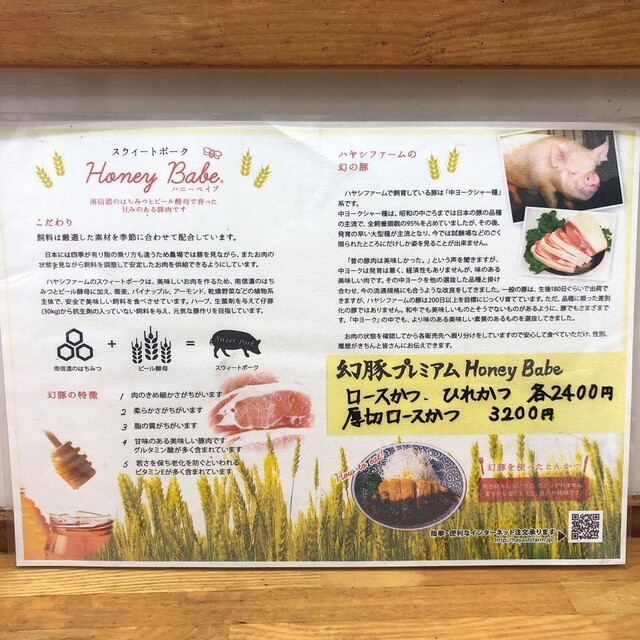 スウィートポーク
Honey Babe®
ハニーベイブ
南信濃のはちみつとビール酵母で育った
甘みのある豚肉です
こだわり
飼料は厳選した素材を季節に合わせて配合しています。
日本には四季が有り脂の乗り方も違うため農場では豚を見ながら、またお肉の
状態を見ながら飼料を調整して安定したお肉を供給できるようにしています。
ハヤシファームのスウィートポークは、美味しいお肉を作るため、南信濃のはち
みつとビール酵母に加え、
パイナップル、アーモンド、乾燥野菜などの植物系
主体で、安全で美味しい飼料を食べさせています。ハーブ、生菌剤を与えて仔豚
(30kg)から抗生剤の入っていない飼料を与え、元気な豚作りを目指しています。
南信濃のはちみつ
+
ビール酵母
=
Sweet Pork
スウィートポーク
幻豚の特徴
1 肉のきめ細かさがちがいます
2 柔らかさがちがいます
3 脂の質がちがいます
4 甘味のある美味しい豚肉です
グルタミン酸が多く含まれています
5 若さを保ち老化を防ぐといわれる
ビタミンEが多く含まれています
ハヤシファームの
幻の豚
ハヤシファームで飼育している豚は「中ヨークシャー種」
系です。
中ヨークシャー種は、昭和の中ごろまでは日本の豚の品種
の主流で、全飼養頭数の95%を占めていましたが、その後、
発育の早い大型種が主流となり、今では試験場などのごく
限られたところにだけしか姿を見ることが出来ません。
「昔の豚肉は美味しかった。」という声を聞きますが、
中ヨークは発育は悪く、経済性もありませんが、味のある
美味しい肉です。その中ヨークを他の選抜した品種と掛け
合わせ、今の流通規格にも合うような改良をしてきました。一般の豚は、生後180日ぐらいで出荷で
きますが、ハヤシファームの豚は200日以上を目標にじっくり育てています。ただ、品種に頼った差別
化の豚ではありません。和牛でも美味しいものとそうでないものがあるように、豚でもさまざまで
す。「中ヨーク」の中でも、より味のある美味しい素質のあるものを選抜してきました。
お肉の状態を確認してから各販売先へ振り分けをしていますので安心して食べていただけ、性別、
履歴がきちんと皆さんにお伝えできます。
幻豚プレミアム Honey Babe
ロースかつ、ひれかつ 各2400円
厚切ロースかつ 3200円
How to eat!
幻豚を使ったとんかつ
簡単・便利なインターネット注文承ります
http://hayashifarm.jp